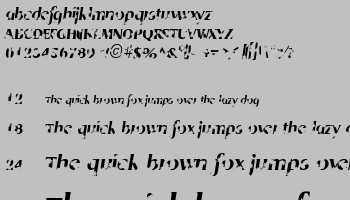 abcdefghijklmnopqrstuvwxyz
ABCDEFGHIJKLMNOPQRSTUVWXYZ
0123456789
12 the quick brown fox jumps over the lazy dog
18 The quick brown fox jumps over the lazy
24 The quick brown fox jumps over